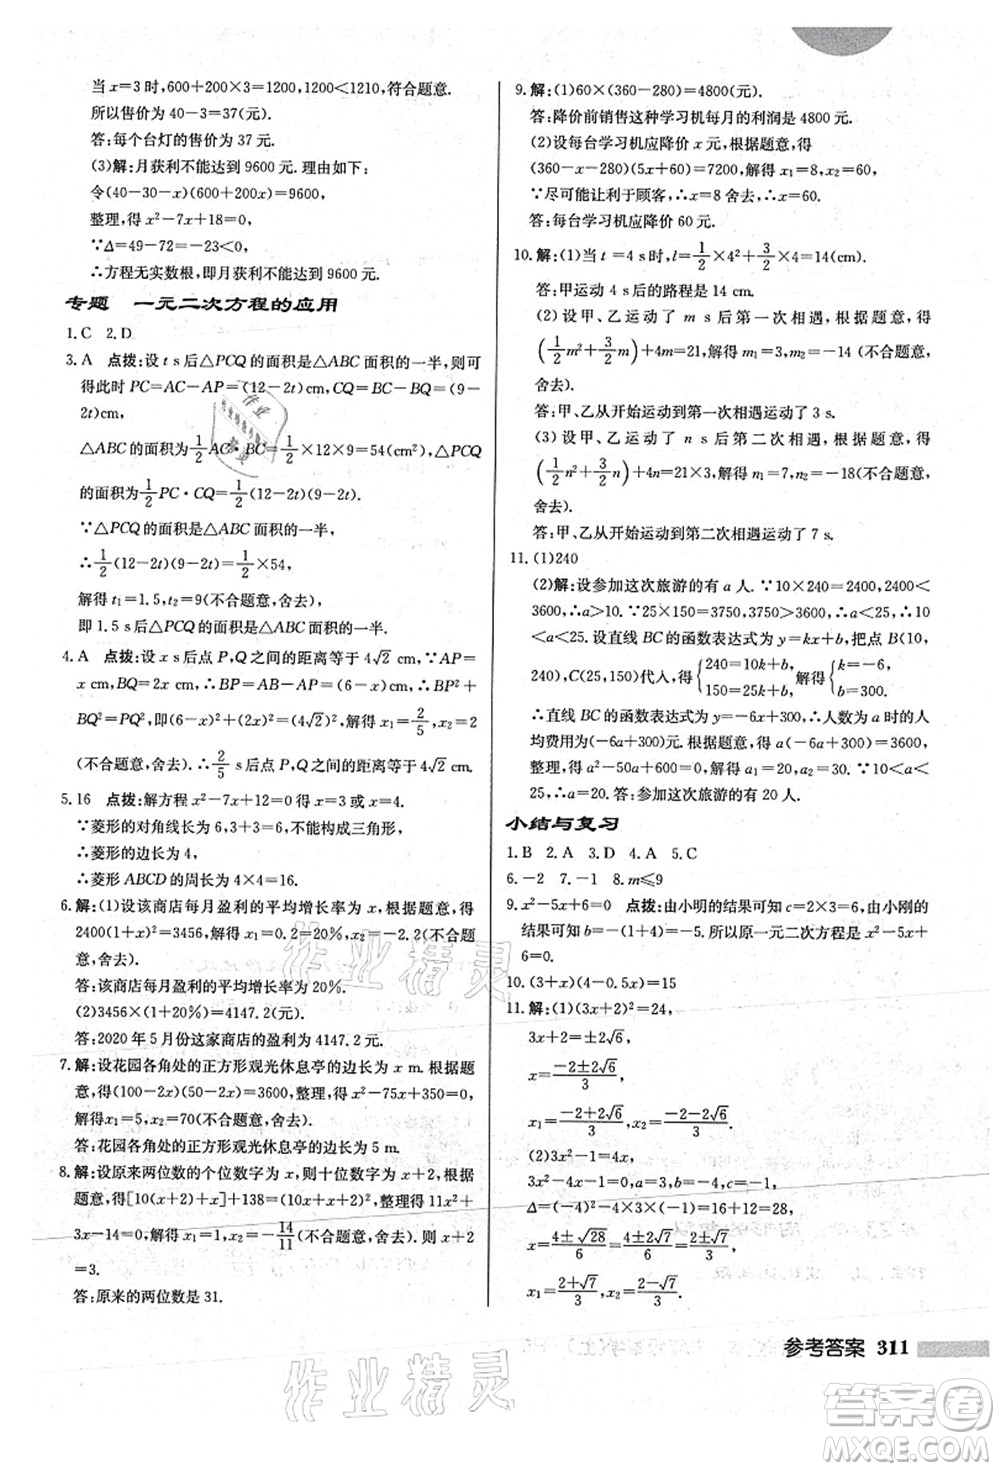 当 x=3 时,600+200×3=1200,1200<1210,符合题意.
所以售价为 40-3=37(元).
答:每个台灯的售价为 37 元.
(3)解:月获利不能达到 9600 元. 理由如下:
令(40-30-x)(600+200x)=9600,
整理,得 x²-7x+18=0.
∵Δ=49-72=-23<0,
∴方程无实数根,即月获利不能达到 9600 元.
专题 一元二次方程的应用
1.C 2.D
3.A 点拨:设 t s后△PCQ 的面积是△ABC 面积的一半,则可
得此时 PC=AC-AP=(12-2t)cm,CQ=BC-BQ=(9-
2t)cm,
△ABC 的面积为1/2 AC·BC=1/2×12×9=54(cm²),△PCQ
的面积为1/2 PC·CQ=1/2(12-2t)(9-2t)cm².
∵△PCQ 的面积是△ABC 面积的一半,
∴1/2(12-2t)(9-2t)=54×1/2,
解得 t₁=1.5,t₂=9(不合题意,舍去),
即 1.5 s后△PCQ 的面积是△ABC 面积的一半.
4.A 点拨:设 x s后点 P,Q 之间的距离等于 4√2 cm,∵AP=
x cm,BQ=2x cm.∴BP=AB-AP=(6-x)cm,∴BP²+
BQ²=PQ²,即(6-x)²+(2x)²=(4√2)²,解得 x₁=2/5,x₂=2
(不合题意,舍去).∴2/5 s后点 P,Q 之间的距离等于 4√2 cm.
5.16 点拨:解方程 x²-7x+12=0 得 x=3 或 x=4.
∵菱形的对角线长为 6,3+3=6,不能构成三角形,
∴菱形的边长为 4,
∴菱形 ABCD 的周长为 4×4=16.
6.解:(1)设该商店每月盈利的平均增长率为 x,根据题意,得
2400(1+x)²=3456,解得 x₁=0.2,x₂=-2.2(不合题意,
舍去).
答:该商店每月盈利的平均增长率为 20%.
(2)3456×(1+20%)=4147.2(元).
答:2020 年 5 月份这家商店的盈利为 4147.2 元.
7.解:设花园各角处的正方形观光休息亭的边长为 x m.根据题
意,得(100-2x)(50-2x)=3600,整理,得 x²-75x+350=0,
解得 x₁=5,x₂=70(不合题意,舍去).
答:花园各角处的正方形观光休息亭的边长为 5 m.
8.解:设原来两位数的个位数字为 x,则十位数字为 x+2,根据
题意,得[10(x+2)+x]+138=(10x+x+2)²,整理得 11x²+
3x-14=0,解得 x₁=1,x₂=-14/11(不合题意,舍去),则 x+2
=3.
答:原来的两位数是 31.
9.解:(1)60×(360-280)=4800(元).
答:降价前销售这种学习机每月的利润是 4800 元.
(2)设每台学习机应降价 x 元,由题意,得
(360-x-280)(5x+60)=7200,解得 x₁=8,x₂=60.
∵尽可能让利于顾客,∴x=8 舍去,∴x=60.
答:每台学习机应降价 60 元.
10.解:(1)当 t=4 s时,l=1/2×4²+3/2×4=14(cm).
答:甲运动 4 s后的路程是 14 cm.
(2)设甲、乙运动 m s后第一次相遇,根据题意,得
(1/2m²+3/2m)+4m=21,解得 m₁=3,m₂=-14(不合题意,
舍去).
答:甲、乙从开始运动到第一次相遇运动了 3 s.
(3)设甲、乙运动了 n s后第二次相遇,根据题意,得
(1/2n²+3/2n)+4n=63,解得 n₁=7,n₂=-18(不合题意,
舍去).
答:甲、乙从开始运动到第二次相遇运动了 7 s.
11.(1)240
(2)解:设参加这次旅游的有 a 人.∵10×240=2400,2400<
3600,∴a>10.∵25×150=3750,3750>3600,∴a<25,∴10
<a<25.设直线 BC 的函数表达式为 y=kx+b,把点 B(10,
240),C(25,150)代入,得{240=10k+b, 150=25k+b,解得{k=-6, b=300,
∴直线 BC 的函数表达式为 y=-6x+300,∴人数为 a 时的人
均费用为(-6a+300)元.根据题意,得 a(-6a+300)=3600,
整理,得 a²-50a+600=0,解得 a₁=20,a₂=30.∵10<a<
25,∴a=20.答:参加这次旅游的有 20 人.
小结与复习
1.B 2.A 3.D 4.A 5.C
6.-2 7.-1 8.m≤9
9.x²-5x+6=0 点拨:由小明的结果可知 c=2×3=6,由小刚
的结果可知 b=-(1+4)=-5.所以原一元二次方程是 x²-5x+
6=0.
10.(3+x)(4-0.5x)=15
11.解:(1)(3x+2)²=24,
3x+2=±2√6,
x=(-2±2√6)/3,
x₁=(-2+2√6)/3,x₂=(-2-2√6)/3.
(2)3x²-1=4x,
3x²-4x-1=0,
Δ=(-4)²-4×3×(-1)=16+12=28,
x=(4±√28)/6=(4±2√7)/6=(2±√7)/3,
x₁=(2+√7)/3,x₂=(2-√7)/3.
参考答案 311
作业精灵
作业精灵
答案圈
MXQE.COM